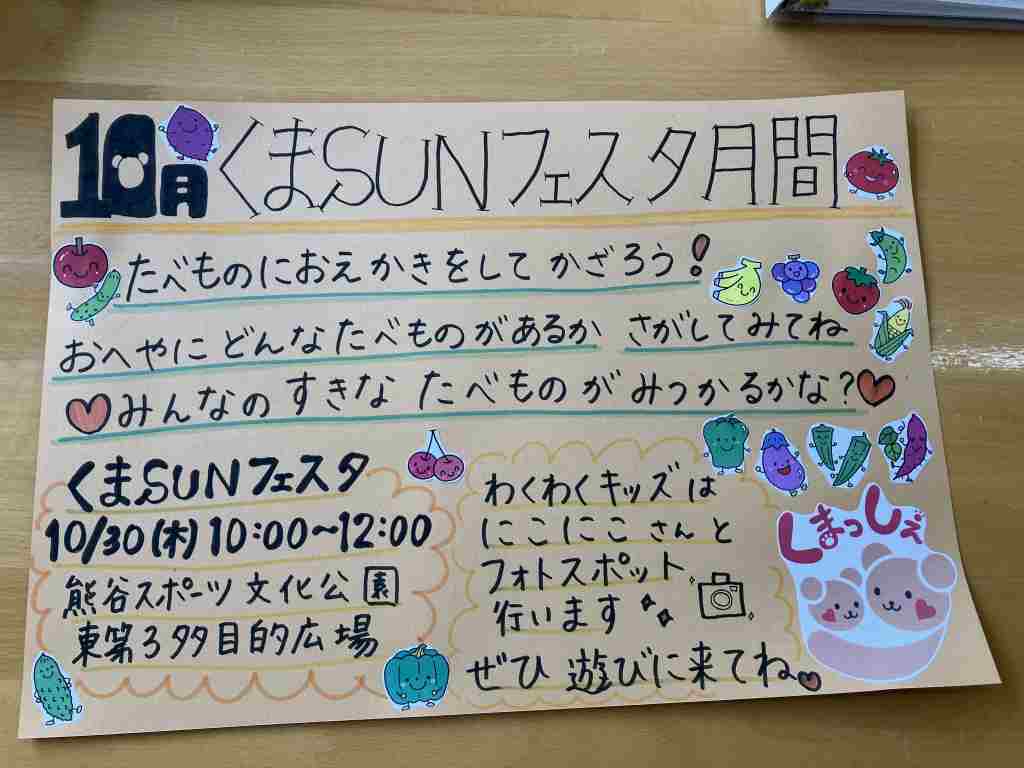 10月 くまSUNフェスタ月間
たべものにおえかきをして かざろう!
おへやにどんなたべものがあるか さがしてみてね
みんなのすきな たべものがみつかるかな?
くまSUNフェスタ
10/30(木)10:00~12:00
熊谷スポーツ文化公園
東第3多目的広場
わくわくキッズは
にこにこさんと
フォトスポット
行います
ぜひ遊びに来てね
くまっしぇ